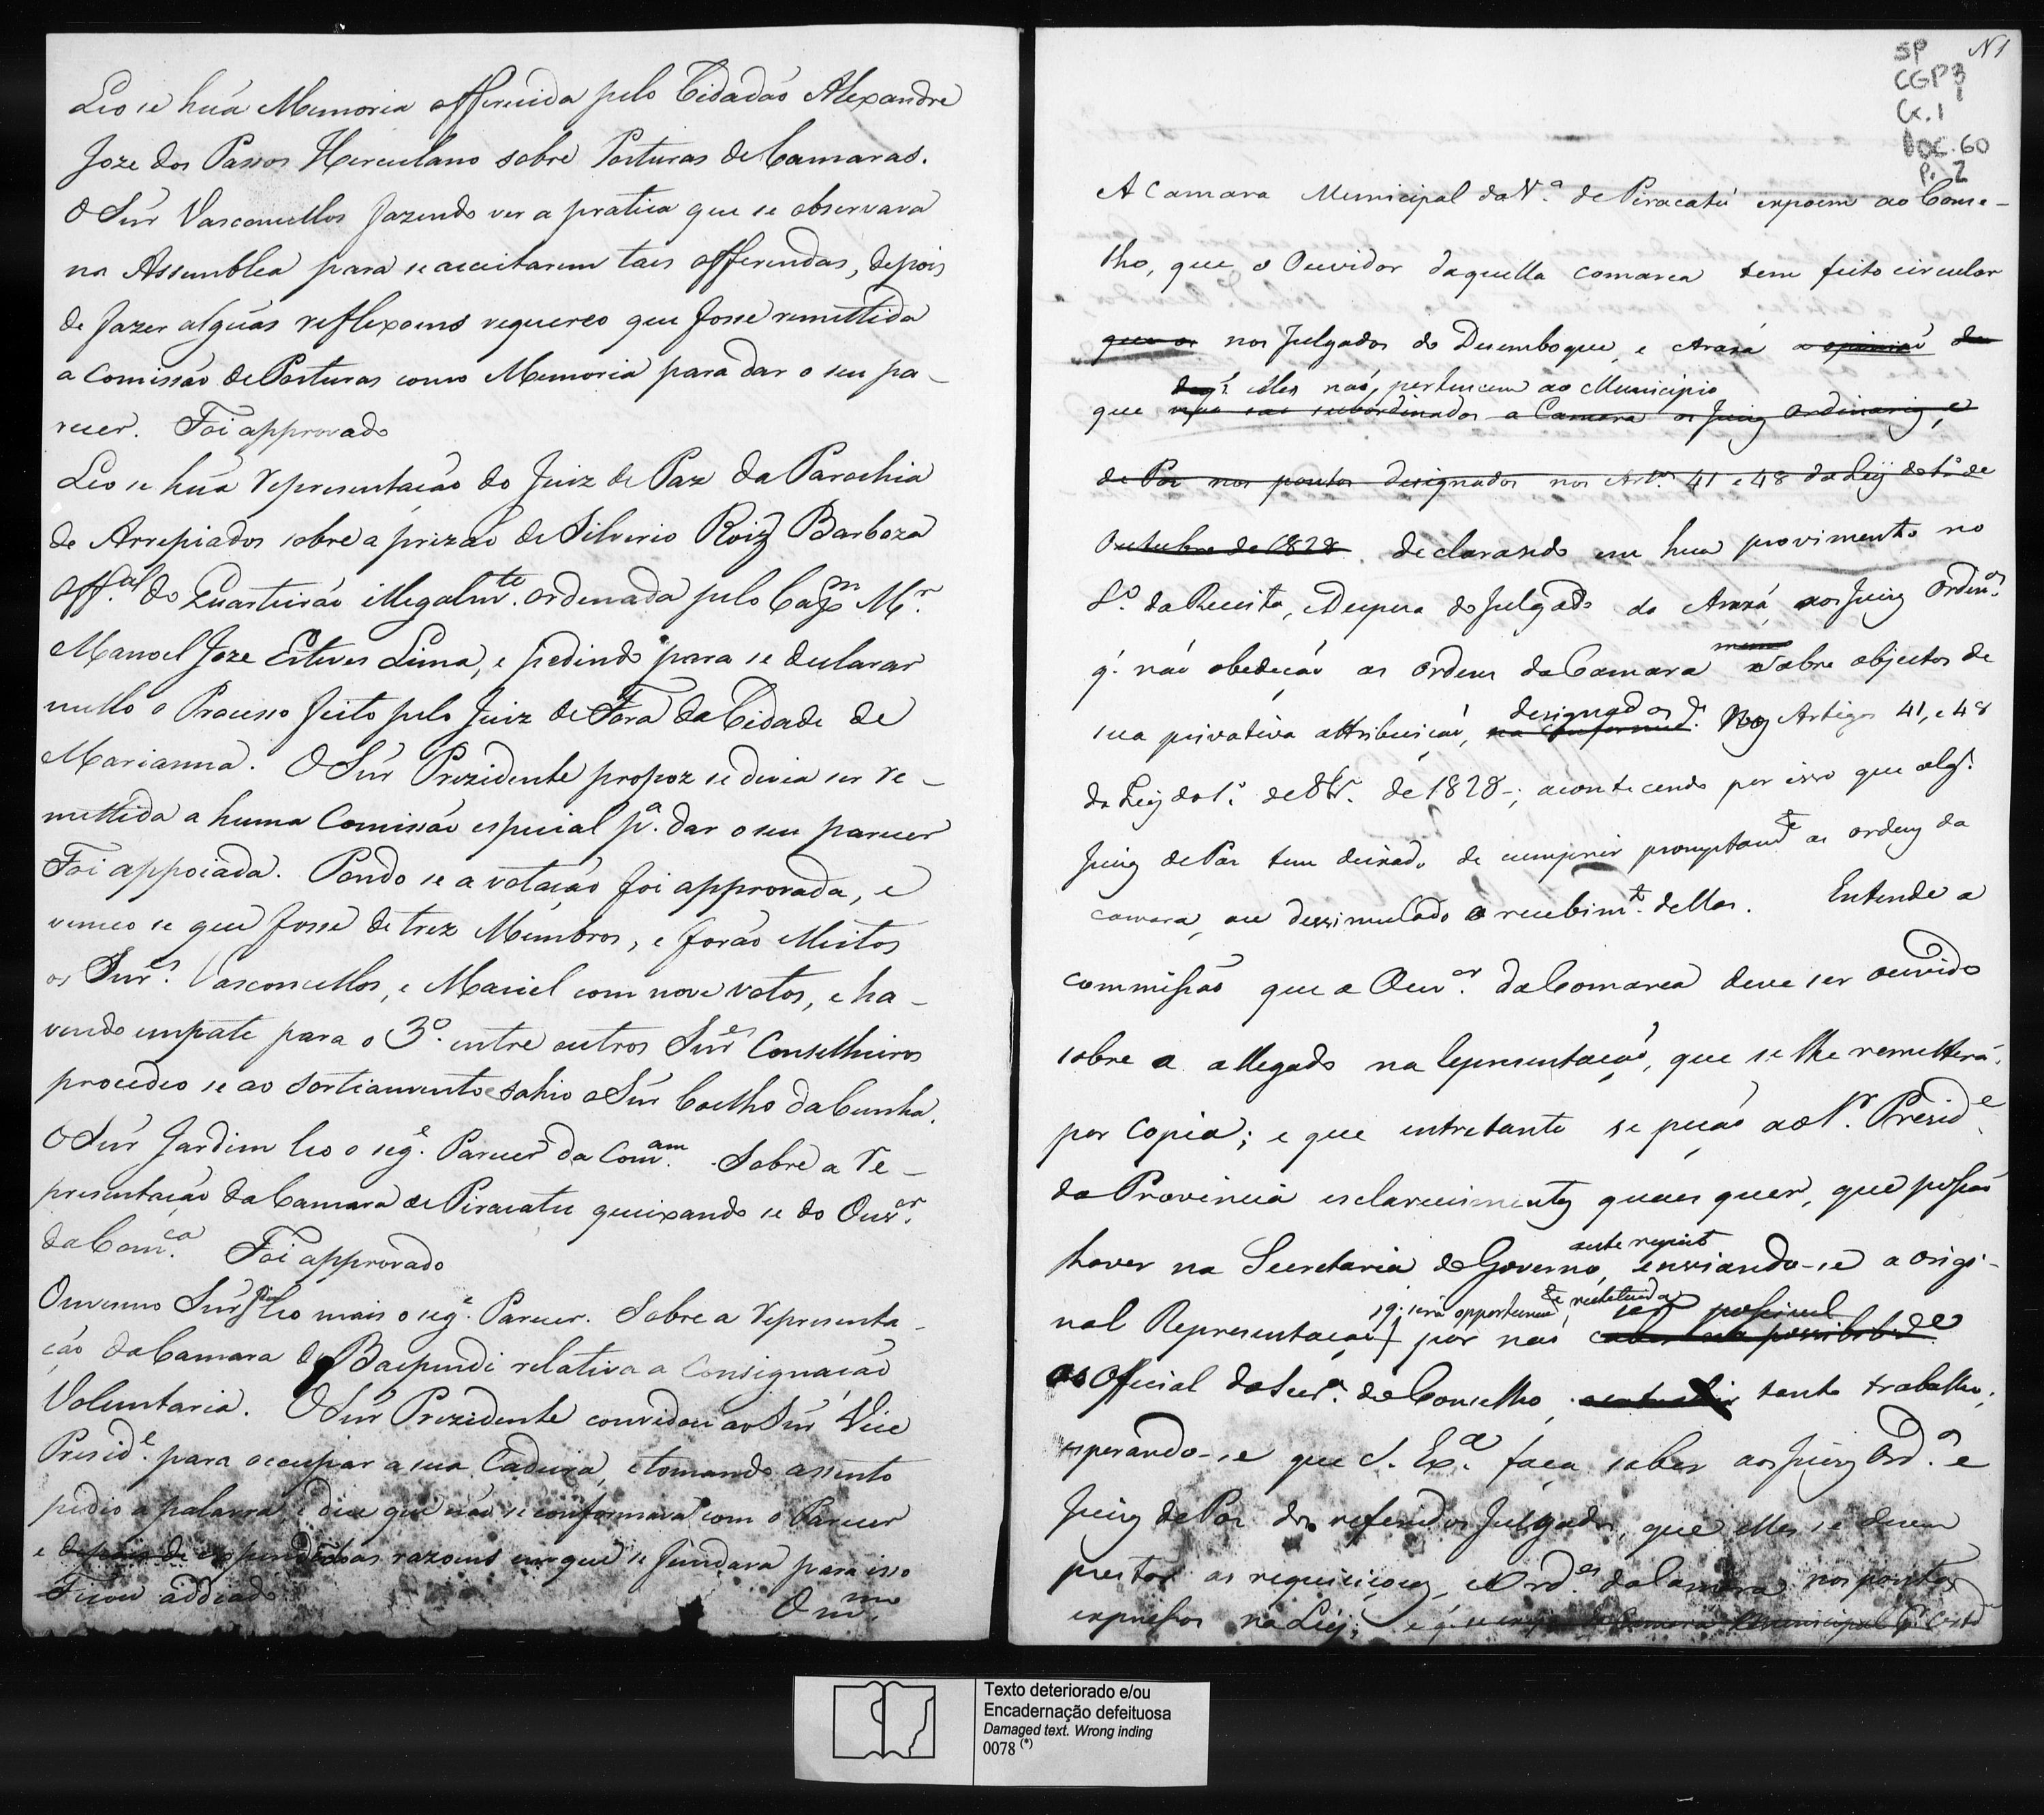 Leo se húa Memoria offerecida pelo Cidadáo Alexandre
Joze dos Passos Herculano sobre Posturas de Camaras.
O Sñr Vasconcellos fazendo ver a pratica que se observava
na Assemblea para se acceitarem taes offerendas, depois
de fazer algúas reflexoens requereo que fosse remettida
a Comissáo de Posturas como Memoria para dar o seu pa-
recer. Foi approvado
Leo se húa representaçáo do Juiz de Paz da Parochia
de Arrepiados sobre a prizáo de Silverio Roiz Barboza
Off.al do Quarteiráo illegalm.te ordenada pelo Cap.m M.r
Manoel Joze Esteves Lima, e pedindo para se declarar
nullo o Processo feito pelo Juiz de Fora da Cidade de
Marianna. O Sñr Prezidente propoz se devia ser re-
mettida a huma Comissáo especial p.a dar o seu parecer
Foi appoiada. Pondo se a votaçáo foi approvada, e
venceo se que fosse de trez Membros, e foráo eleitos
os Snr.s Vasconcellos, e Maciel com nove votos, e ha-
vendo empate para o 3.o entre outros Snr.s Conselheiros
procedeo se ao sorteamento e sahio o Sñr Coelho da Cunha.
O Sñr Jardim leo o seg.e Parecer da Com.am Sobre a re-
presentaçáo da Camara de Piracatu queixando se do Ouv.or
da Com.ca Foi approvado
O mesmo Sñr leo mais o seg.e Parecer. Sobre a representa-
çáo da Camara de Baependi relativa a Consignaçáo
Voluntaria. O Sñr Prezidente convidou ao Sñr Vice
Presid.e para occupar a sua Cadeira, e tomando assento
pedio a palavra, e disse que náo se conformava com o Parecer
e depois de expendidas as razoens em que se fundara para isso
Ficou addiado
O m.mo
N1
SP
CGP3
Cx. 1
DOC. 60
P. 2
A Camara Municipal da V.a de Piracatú expoem ao Conse-
lho, que o Ouvidor daquella comarca tem feito circular
que os nos Julgados do Desemboque, e Araxá a opiniaó de
elles naó, pertencem ao Municipio
que naó saó subordinados a Camara os Juiz ordinarios, e
de Paz nos pontos designados nos Art.os 41 e 48 da Ley do 1.o de
Outubro de 1828. declarando em hum provimento no
L.o da Receita, e Despeza do Julgado do Araxá, aos Juizes Ordin.os
q. náo obedeçáo as ordens da Camara sobre objectos de
sua privativa attribuiçaó, designados nos Artigos 41, e 48
da Ley do 1.o de 8br.o de 1828-; acontecendo por isso que alg.s
Juizes de Paz tem deixado de cumprir promptam.te as ordens da
camara, ou dessimulado o recebim.to dellas. Entende a
commissáo que o Ouv.or da Comarca deve ser ouvido
sobre o allegado na representaçaó, que se lhe remetterá
por copia; e que entretanto se peçáo ao S.r Presid.e
da Provincia esclarecimentos quaes quer, que possáo
haver na Secretaria do Governo, enviando-se a origi-
nal Representaçaó por naó ser possivel
ao Official da Secr.a do Concelho, tanto trabalho;
esperando-se que S. Ex.a faça saber aos Juizes Ord.os e
Juizes de Paz dos referidos Julgados, que elles se devem
prestar as requisiçoens, e Ord.es da Camara nos pontos
expressos na Ley;
Texto deteriorado e/ou
Encadernação defeituosa
Damaged text. Wrong inding
0078 (*)